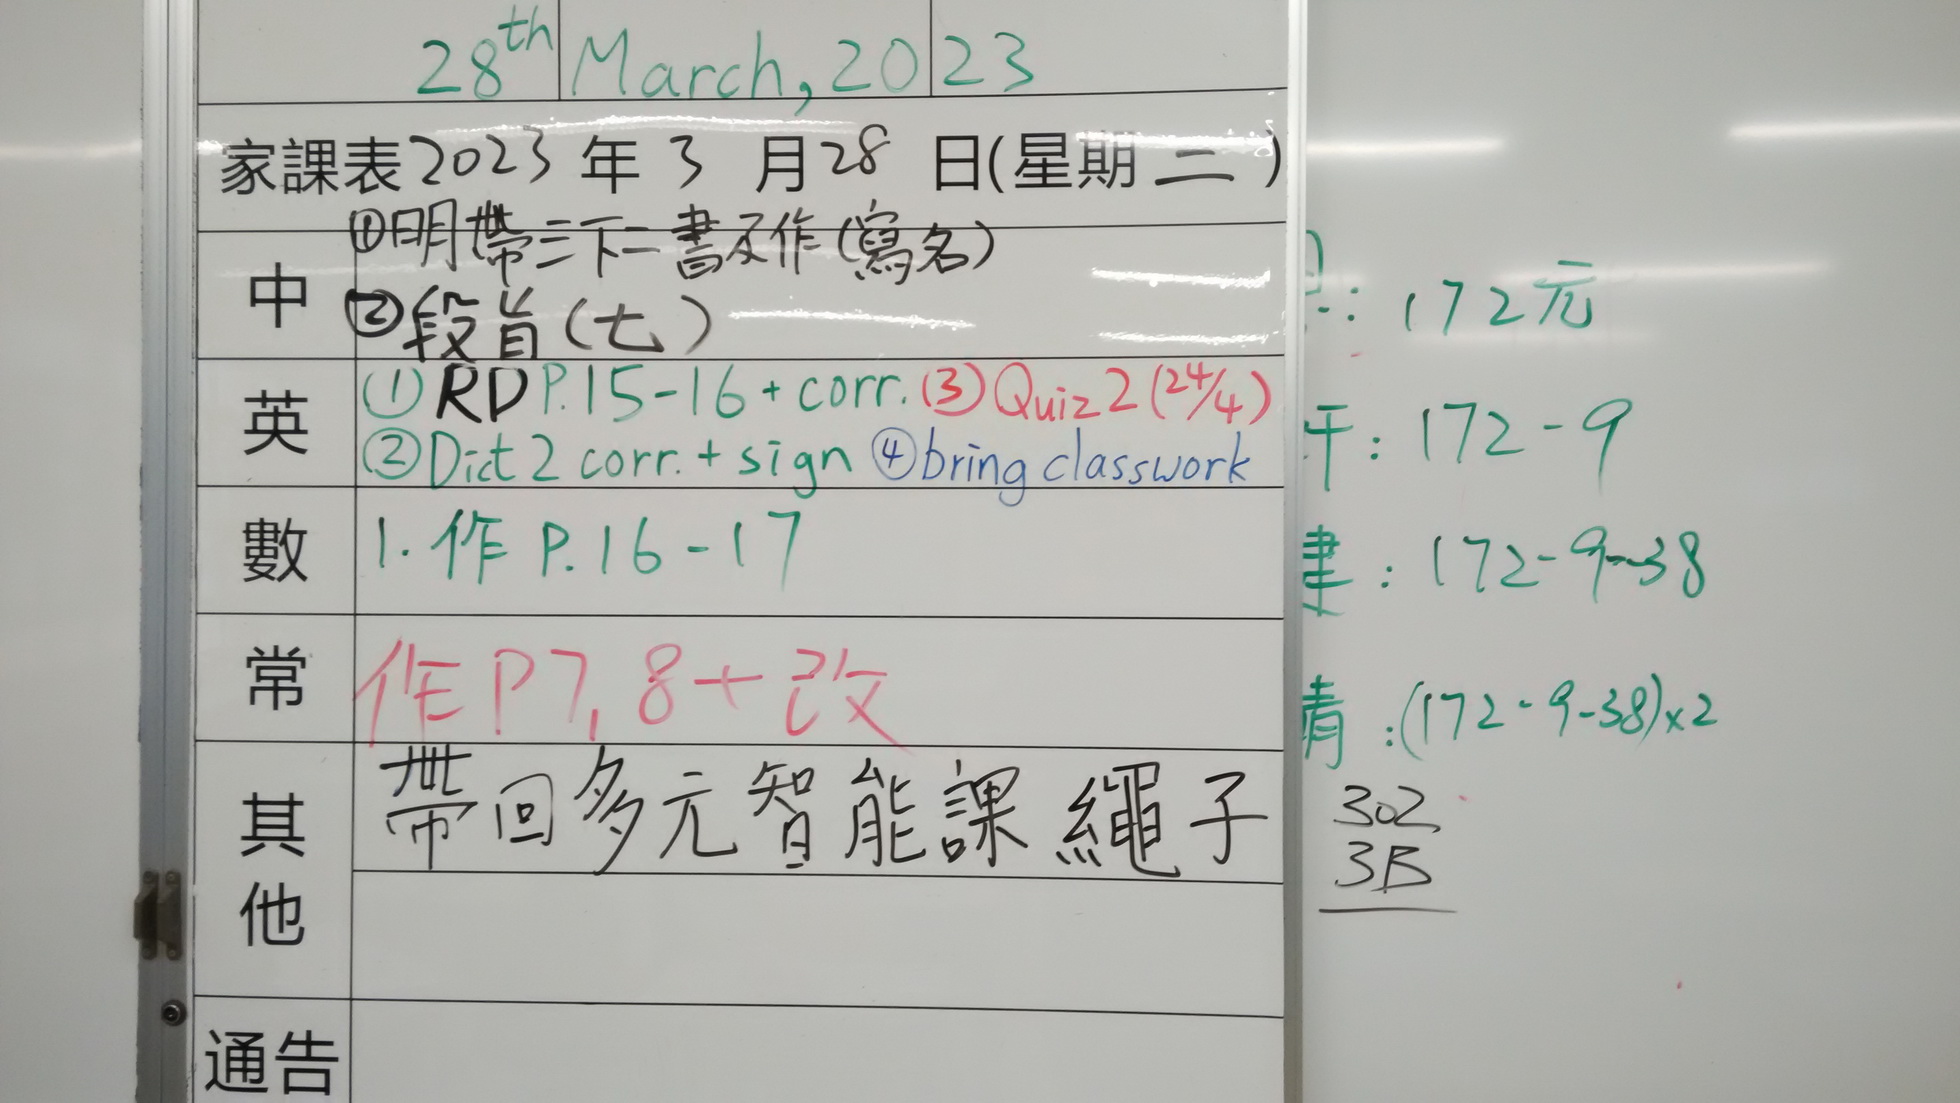 28th March, 2023
家課表2023年3月28日(星期二)
中
①明帶三下二書及作(寫名)
②段旨(七)
英
(1) RD P.15-16 + corr. (3) Quiz 2 (24/4)
② Dict 2 corr. + sign ④ bring classwork
數
1. 作 P.16-17
常
作 P7, 8 + 改
其他
帶回多元智能課繩子
通告
: 172元
: 172-9
: 172-9-38
: (172-9-38)x2
302
3B